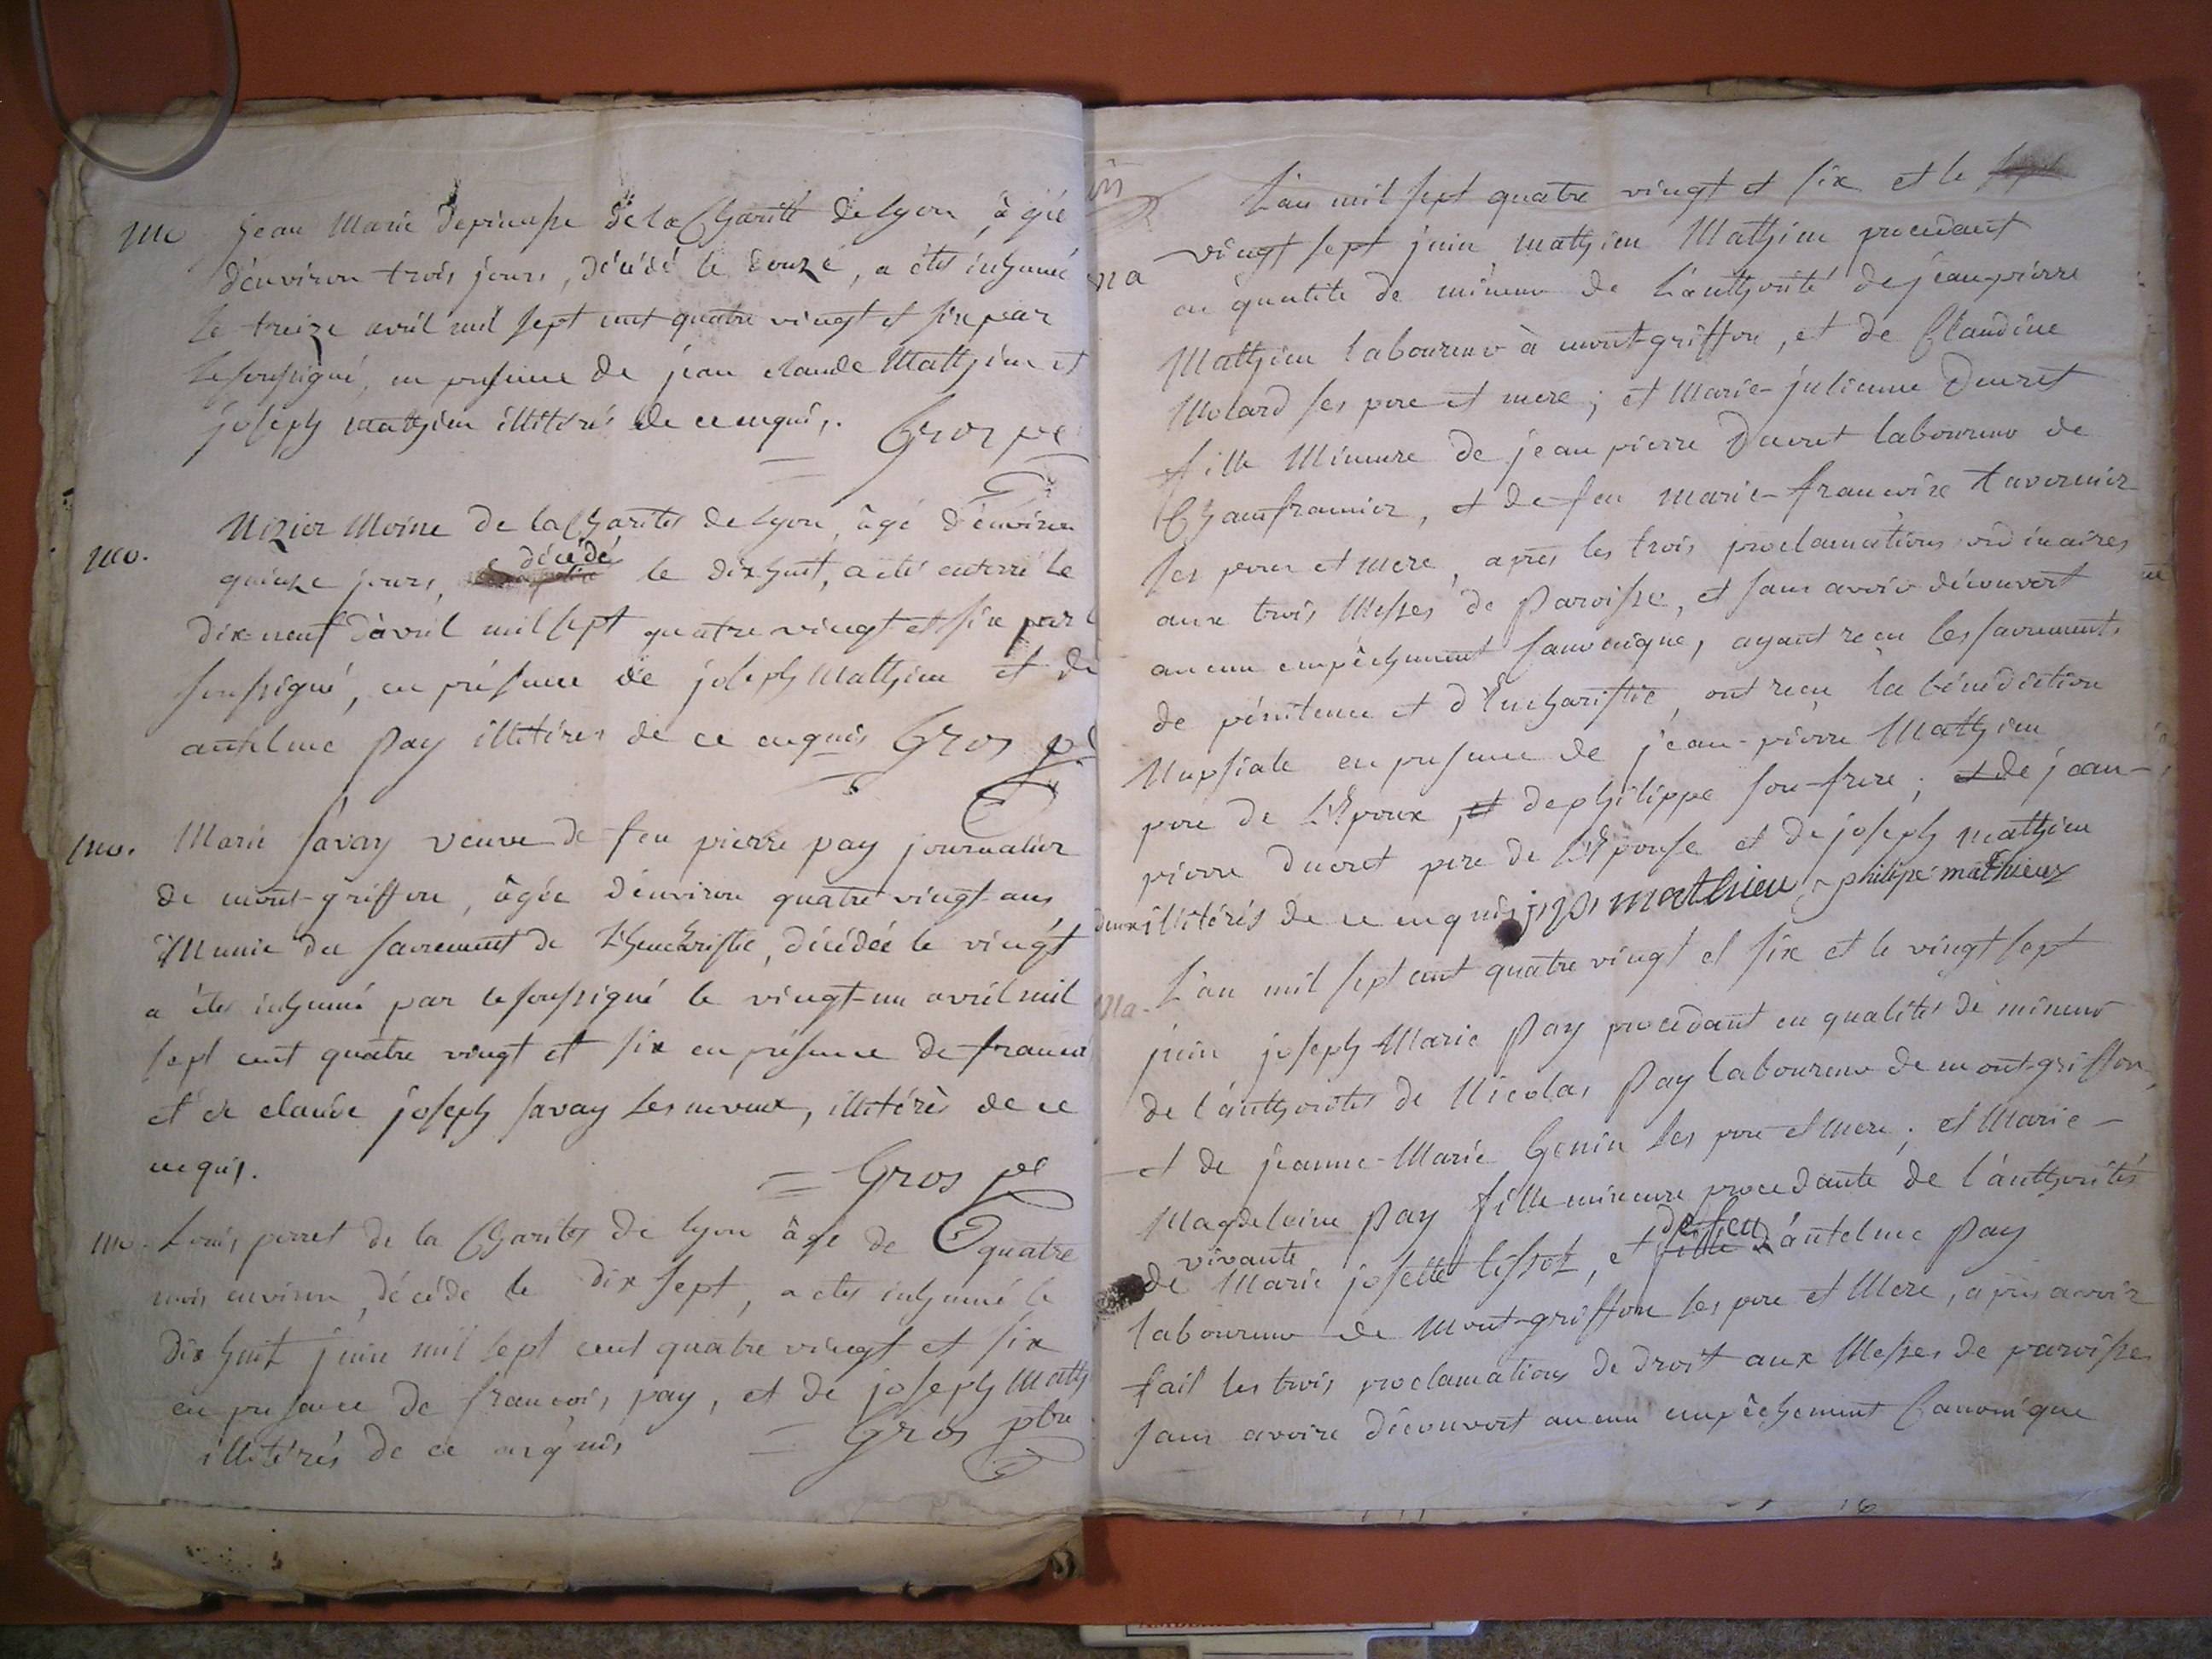 mo Jean Marie de la Charité de Lyon, âgée
d'environ trois jours, décédé le douze, a étés inhumé
le treize avril mil sept cent quatre vingt et six par
le soussigné, en presence de jean claude Mathieu et
joseph mathieu illitérés de ce enquis. Gros
mo. Nizier Moine de la Charités de Lyon, âgé d'environ
quinze jours, décédé le dixhuit, a étés enterré le
dix-neuf d'avril mil sept quatre vingt et six par l
soussigné, en présence de joseph Mathieu et de
antelme pay illitérés de ce enquis Gros
mo. Marie savay veuve de feu pierre pay journalier
de mont-griffon, âgée d'environ quatre vingt ans
Munie du sacrement de L'heucharistie, décédée le vingt
a étés inhumé par le soussigné le vingt-un avril mil
sept cent quatre vingt et six en présence de francois
et de claude joseph savay ses neveux, illitérés de ce
enquis. = Gros
mo. Louis perret de la Charités de Lyon âgé de quatre
mois environ, décédé le dix sept, a étés inhumé le
dix huit juin mil sept cent quatre vingt et six
en presence de francois pay, et de joseph Math
illitérés de ce enquis = Gros ptre
L'an mil sept quatre vingt et six et le
ma vingt sept juin mathieu Mathieu procedant
en qualité de mineur de L'authorité de jean-pierre
Mathieu laboureur à mont-griffon, et de Claudine
Molard ses pere et mere; et Marie-julienne Ducret
fille Mineure de jean pierre Ducret laboureur de
Chamframier, et de feu marie-francoise tavernier
ses peres et mere, apres les trois proclamations ordinaires
aux trois Messes de Paroisse, et sans avoir découvert
aucun empêchement canonique, ayant reçu les sacrements
de pénitence et d'Eucharistie, ont reçu la bénédiction
Nupsiale en presence de jean-pierre Mathieu
pere de L'Epoux, et de philippe son frere; et de jean-
pierre ducret pere de L'Epouse et de joseph mathieu
deux illitérés de ce enquis mathieu philipe mathieux
ma. L'an mil sept cent quatre vingt et six et le vingt sept
juin joseph Marie Pay procedant en qualités de mineur
de l'authorités de Nicolas Pay laboureur de mont-griffon,
et de jeanne-Marie Genin ses pere et mere; et Marie-
Magdeleine Pay fille mineure procedante de l'authorités
vivante de feu
de Marie josette et d'antelme Pay
laboureur de Mont-griffon ses pere et Mere, apres avoir
fait les trois proclamations de droit aux Messes de paroisse
sans avoire découvert aucun empêchement Canonique